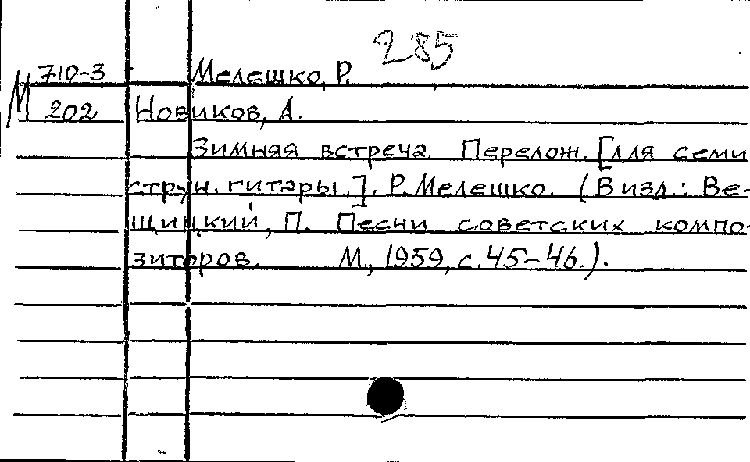 285
М 710-3 Мелешко, Р.
202 Новиков, А.
Зимняя встреча. Перелож. [для семи
струн. гитары.]. Р. Мелешко. (В изд.: Ве-
щицкий, П. Песни советских компо-
зиторов. М., 1959, с. 45-46.).